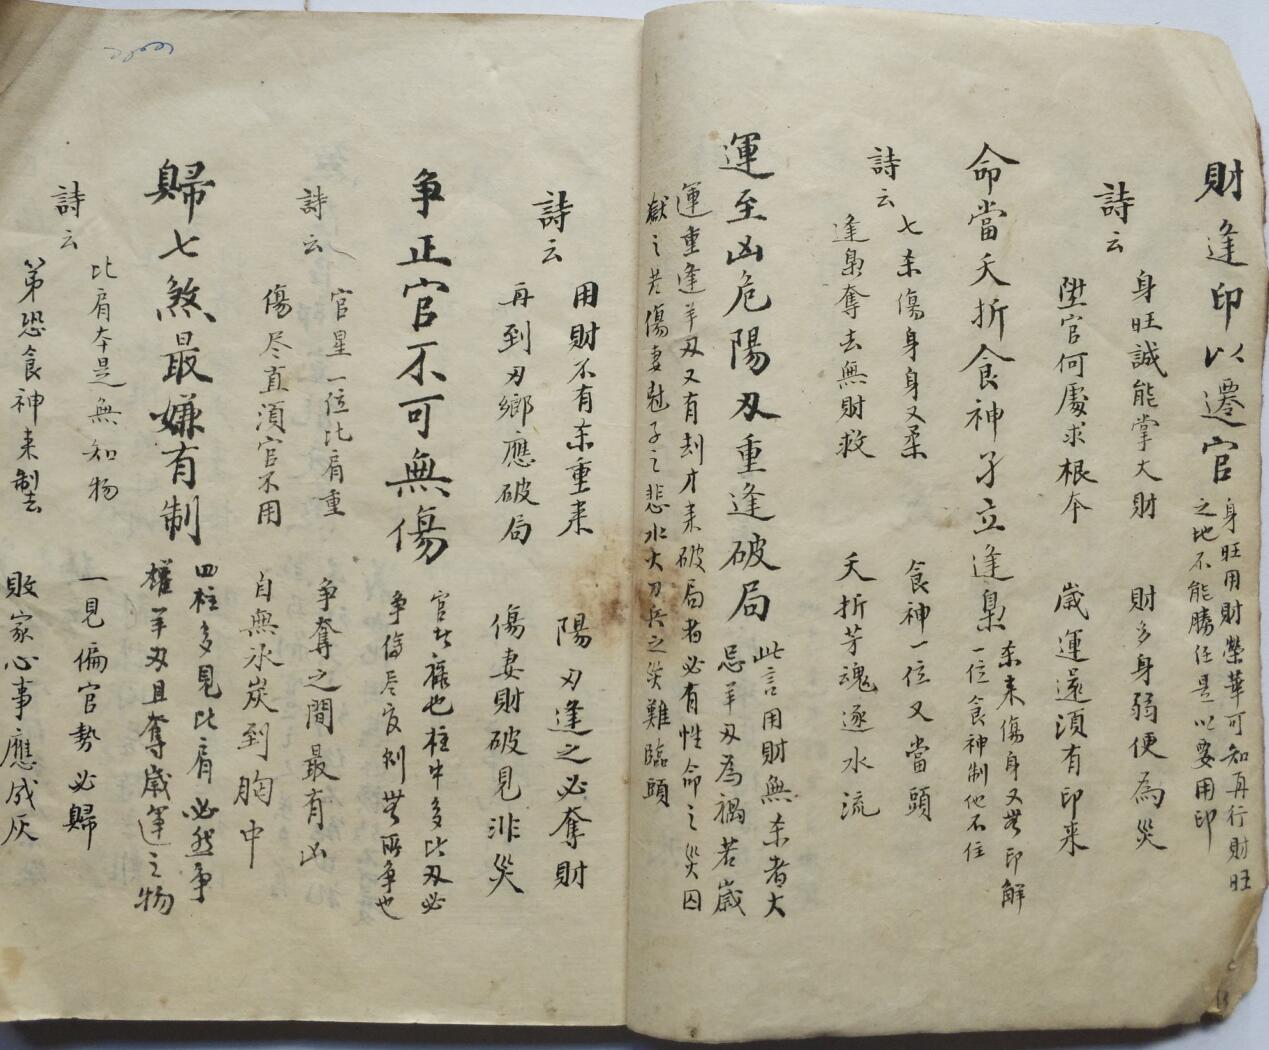 財逢印以遷官
身旺用財榮華可知再行財旺
之地不能勝任是以要用印
詩云
身旺誠能掌大財 財多身弱便為災
陞官何處求根本 歲運還須有印来
命當夭折食神孑立逢梟
杀来傷身又無印解
一位食神制他不住
詩云
七杀傷身身又柔 食神一位又當頭
逢梟奪去無財救 夭折芳魂逐水流
運至凶危陽刃重逢破局
此言用財無杀者大
忌羊刃為禍若歲
運重逢羊刃又有刦才来破局者必有性命之災囚
獄之苦傷妻尅子之悲水火刀兵之災難臨頭
詩云
用財不有杀重来 陽刃逢之必奪財
再到刃鄉應破局 傷妻財破見非災
争正官不可無傷
官者祿也柱中多比刃必
争傷尽官刹無所争也
詩云
官星一位比肩重 争奪之間最有凶
傷尽直須官不用 自無氷炭到胸中
歸七煞最嫌有制
四柱多見比肩必然争
權羊刃且奪歲運之物
詩云
比肩本是無知物 一見偏官勢必歸
第恐食神来制去 敗家心事應成灰